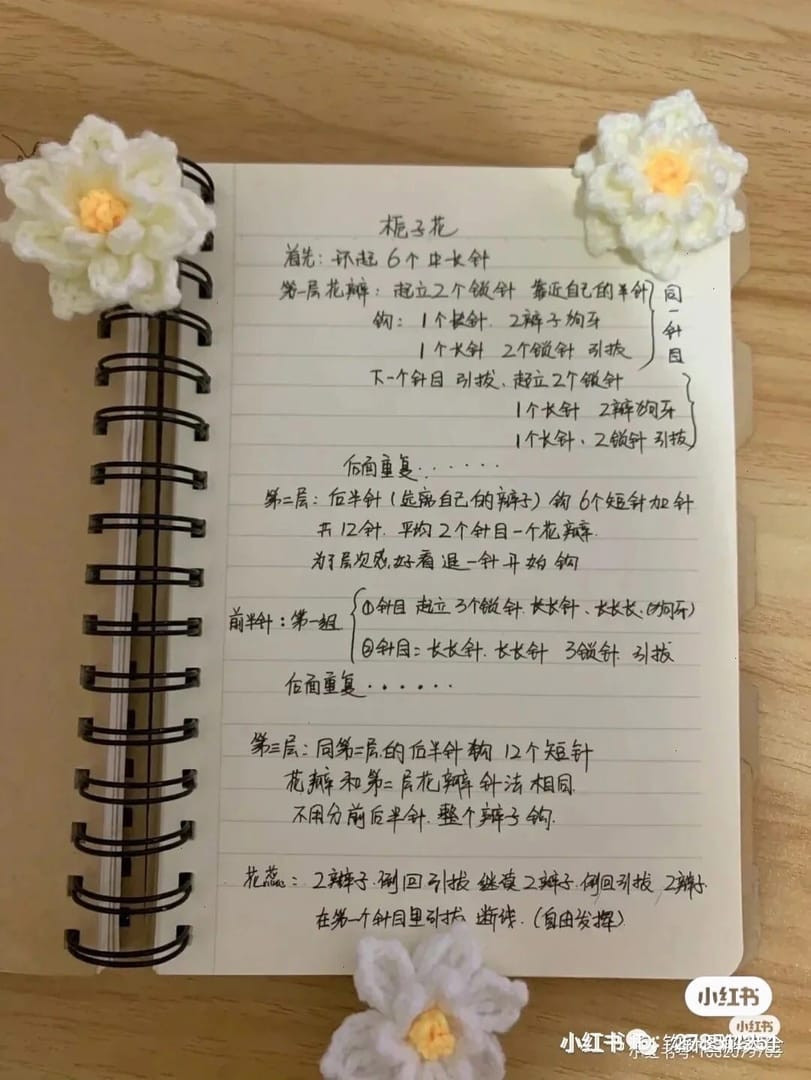 栀子花
首先：环起 6个中长针
第一层花瓣：起立2个锁针 靠近自己的半针
钩：1个长针. 2辫子狗牙
1个长针 2个锁针 引拔
同一针目
下一个针目 引拔、起立2个锁针
1个长针 2辫狗牙
1个长针、2锁针 引拔
后面重复......
第二层：后半针(远离自己的辫子) 钩 6个短针加针
共12针. 平均2个针目一个花瓣.
为了层次感,好看 退一针开始钩
前半针：第一组
①针目 起立3个锁针. 长长针、长长长.(狗牙)
②针目：长长针. 长长针 3锁针. 引拔
后面重复......
第三层：同第二层的后半针钩 12个短针
花瓣和第二层花瓣针法相同.
不用分前后半针. 整个辫子钩.
花蕊：2辫子.倒回引拔 继续2辫子.倒回引拔 2辫子
在第一个针目里引拔 断线.(自由发挥)
小红书
小红书
小红书